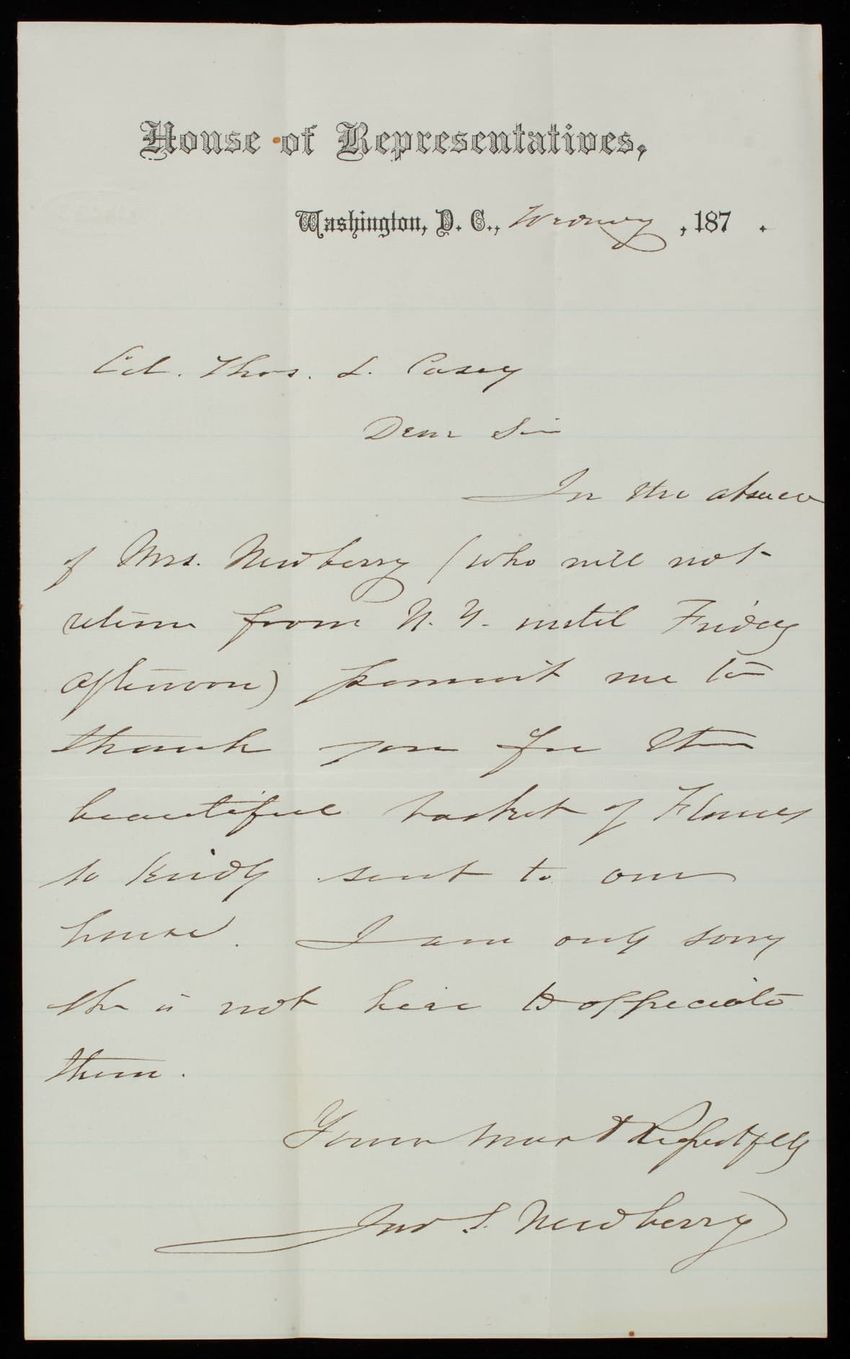 House of Representatives,
Washington, D. C., Wednesy, 187 .
Col. Thos. L. Casey
Dear Sir
In the absence
of Mrs. Newberry (who will not
return from N. Y. until Friday
afternoon) permit me to
thank you for the
beautiful basket of Flowers
so kindly sent to our
house. I am only sorry
she is not here to appreciate
them.
Yours most Respectfully
Jno S. Newberry